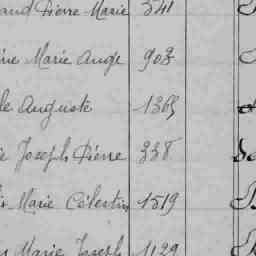 Pierre Marie 541
Marie Ange 908
Auguste 1365
Joseph Pierre 338
Marie Célestin 1519
Marie Joseph 1129